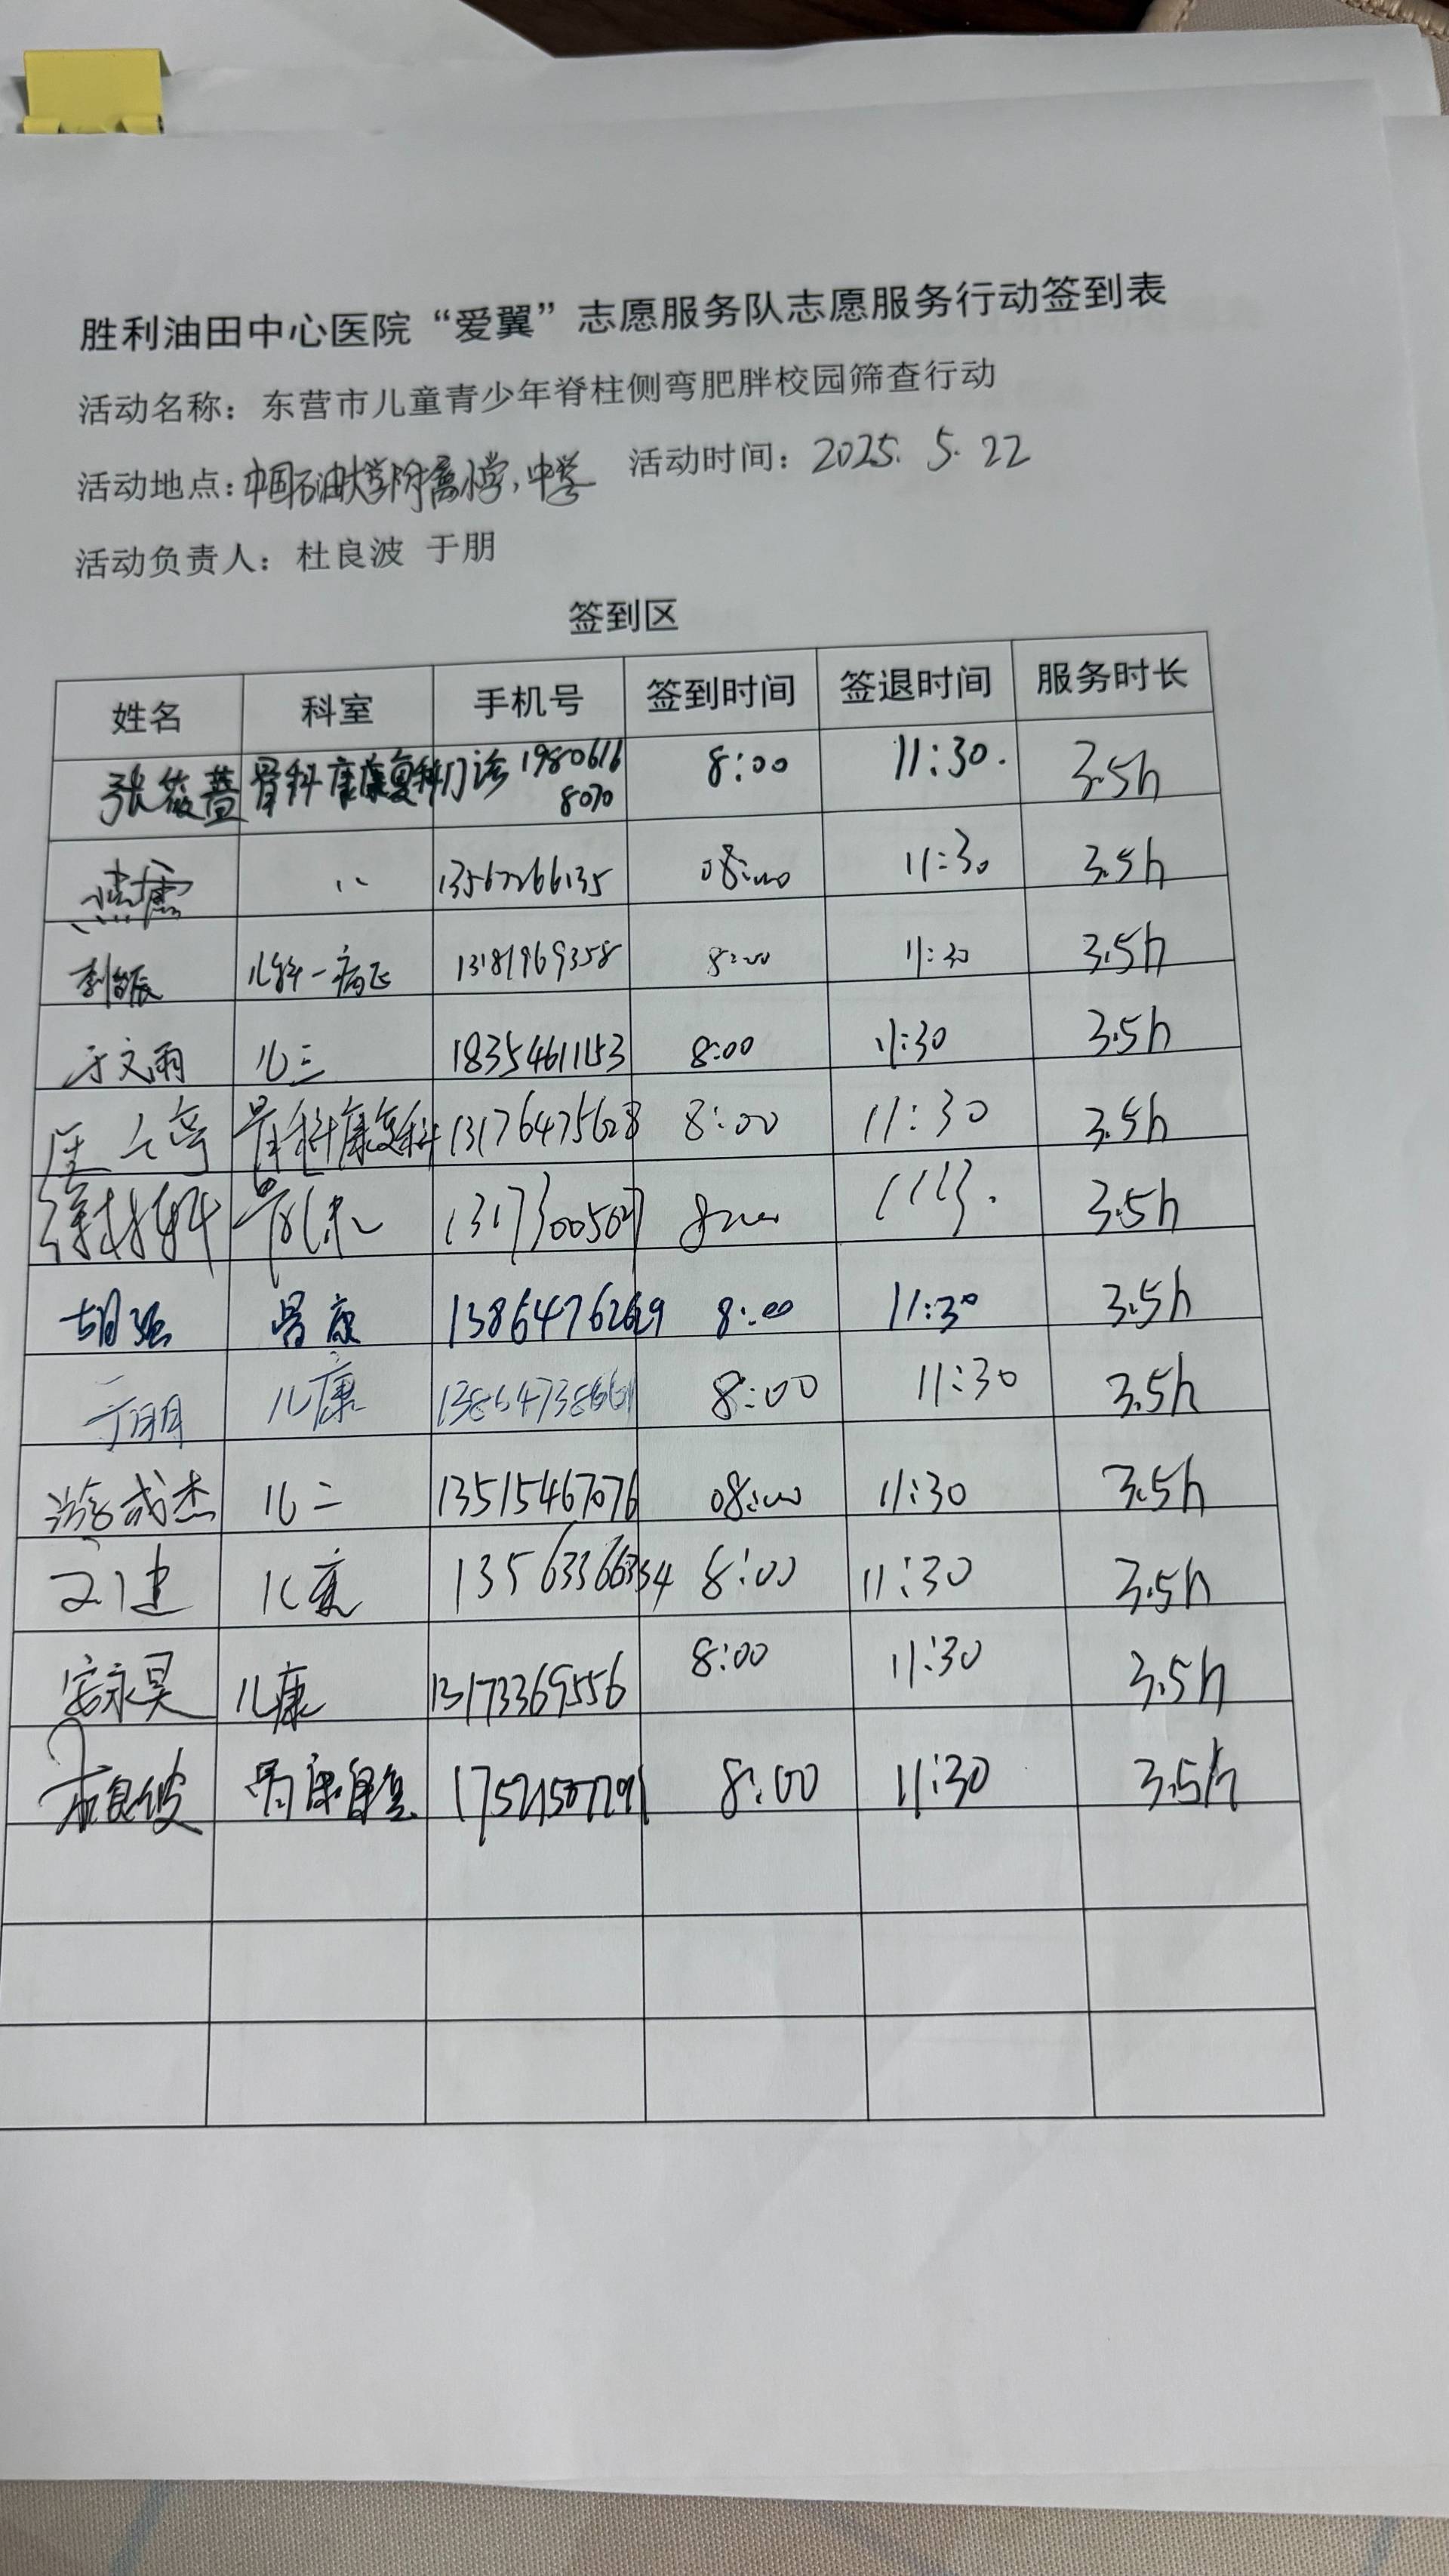 胜利油田中心医院“爱翼”志愿服务队志愿服务行动签到表
活动名称：东营市儿童青少年脊柱侧弯肥胖校园筛查行动
活动地点：中国石油大学附属小学，中学 活动时间：2025. 5. 22
活动负责人：杜良波 于朋
签到区
姓名 科室 手机号 签到时间 签退时间 服务时长
张筱萱 骨科康复科门诊 19806168070 8:00 11:30. 3.5h
13567266135 08:00 11:30 3.5h
儿科一病区 13181969358 8:00 11:30 3.5h
于文雨 儿三 18354611153 8:00 11:30 3.5h
骨科康复科 13176475628 8:00 11:30 3.5h
3.5h
胡强 骨康 13864762629 8:00 11:30 3.5h
于朋 儿康 13864738661 8:00 11:30 3.5h
游成杰 儿二 13515467076 08:00 11:30 3.5h
儿康 13563366334 8:00 11:30 3.5h
安永昊 儿康 13173369556 8:00 11:30 3.5h
杜良波 8:00 11:30 3.5h